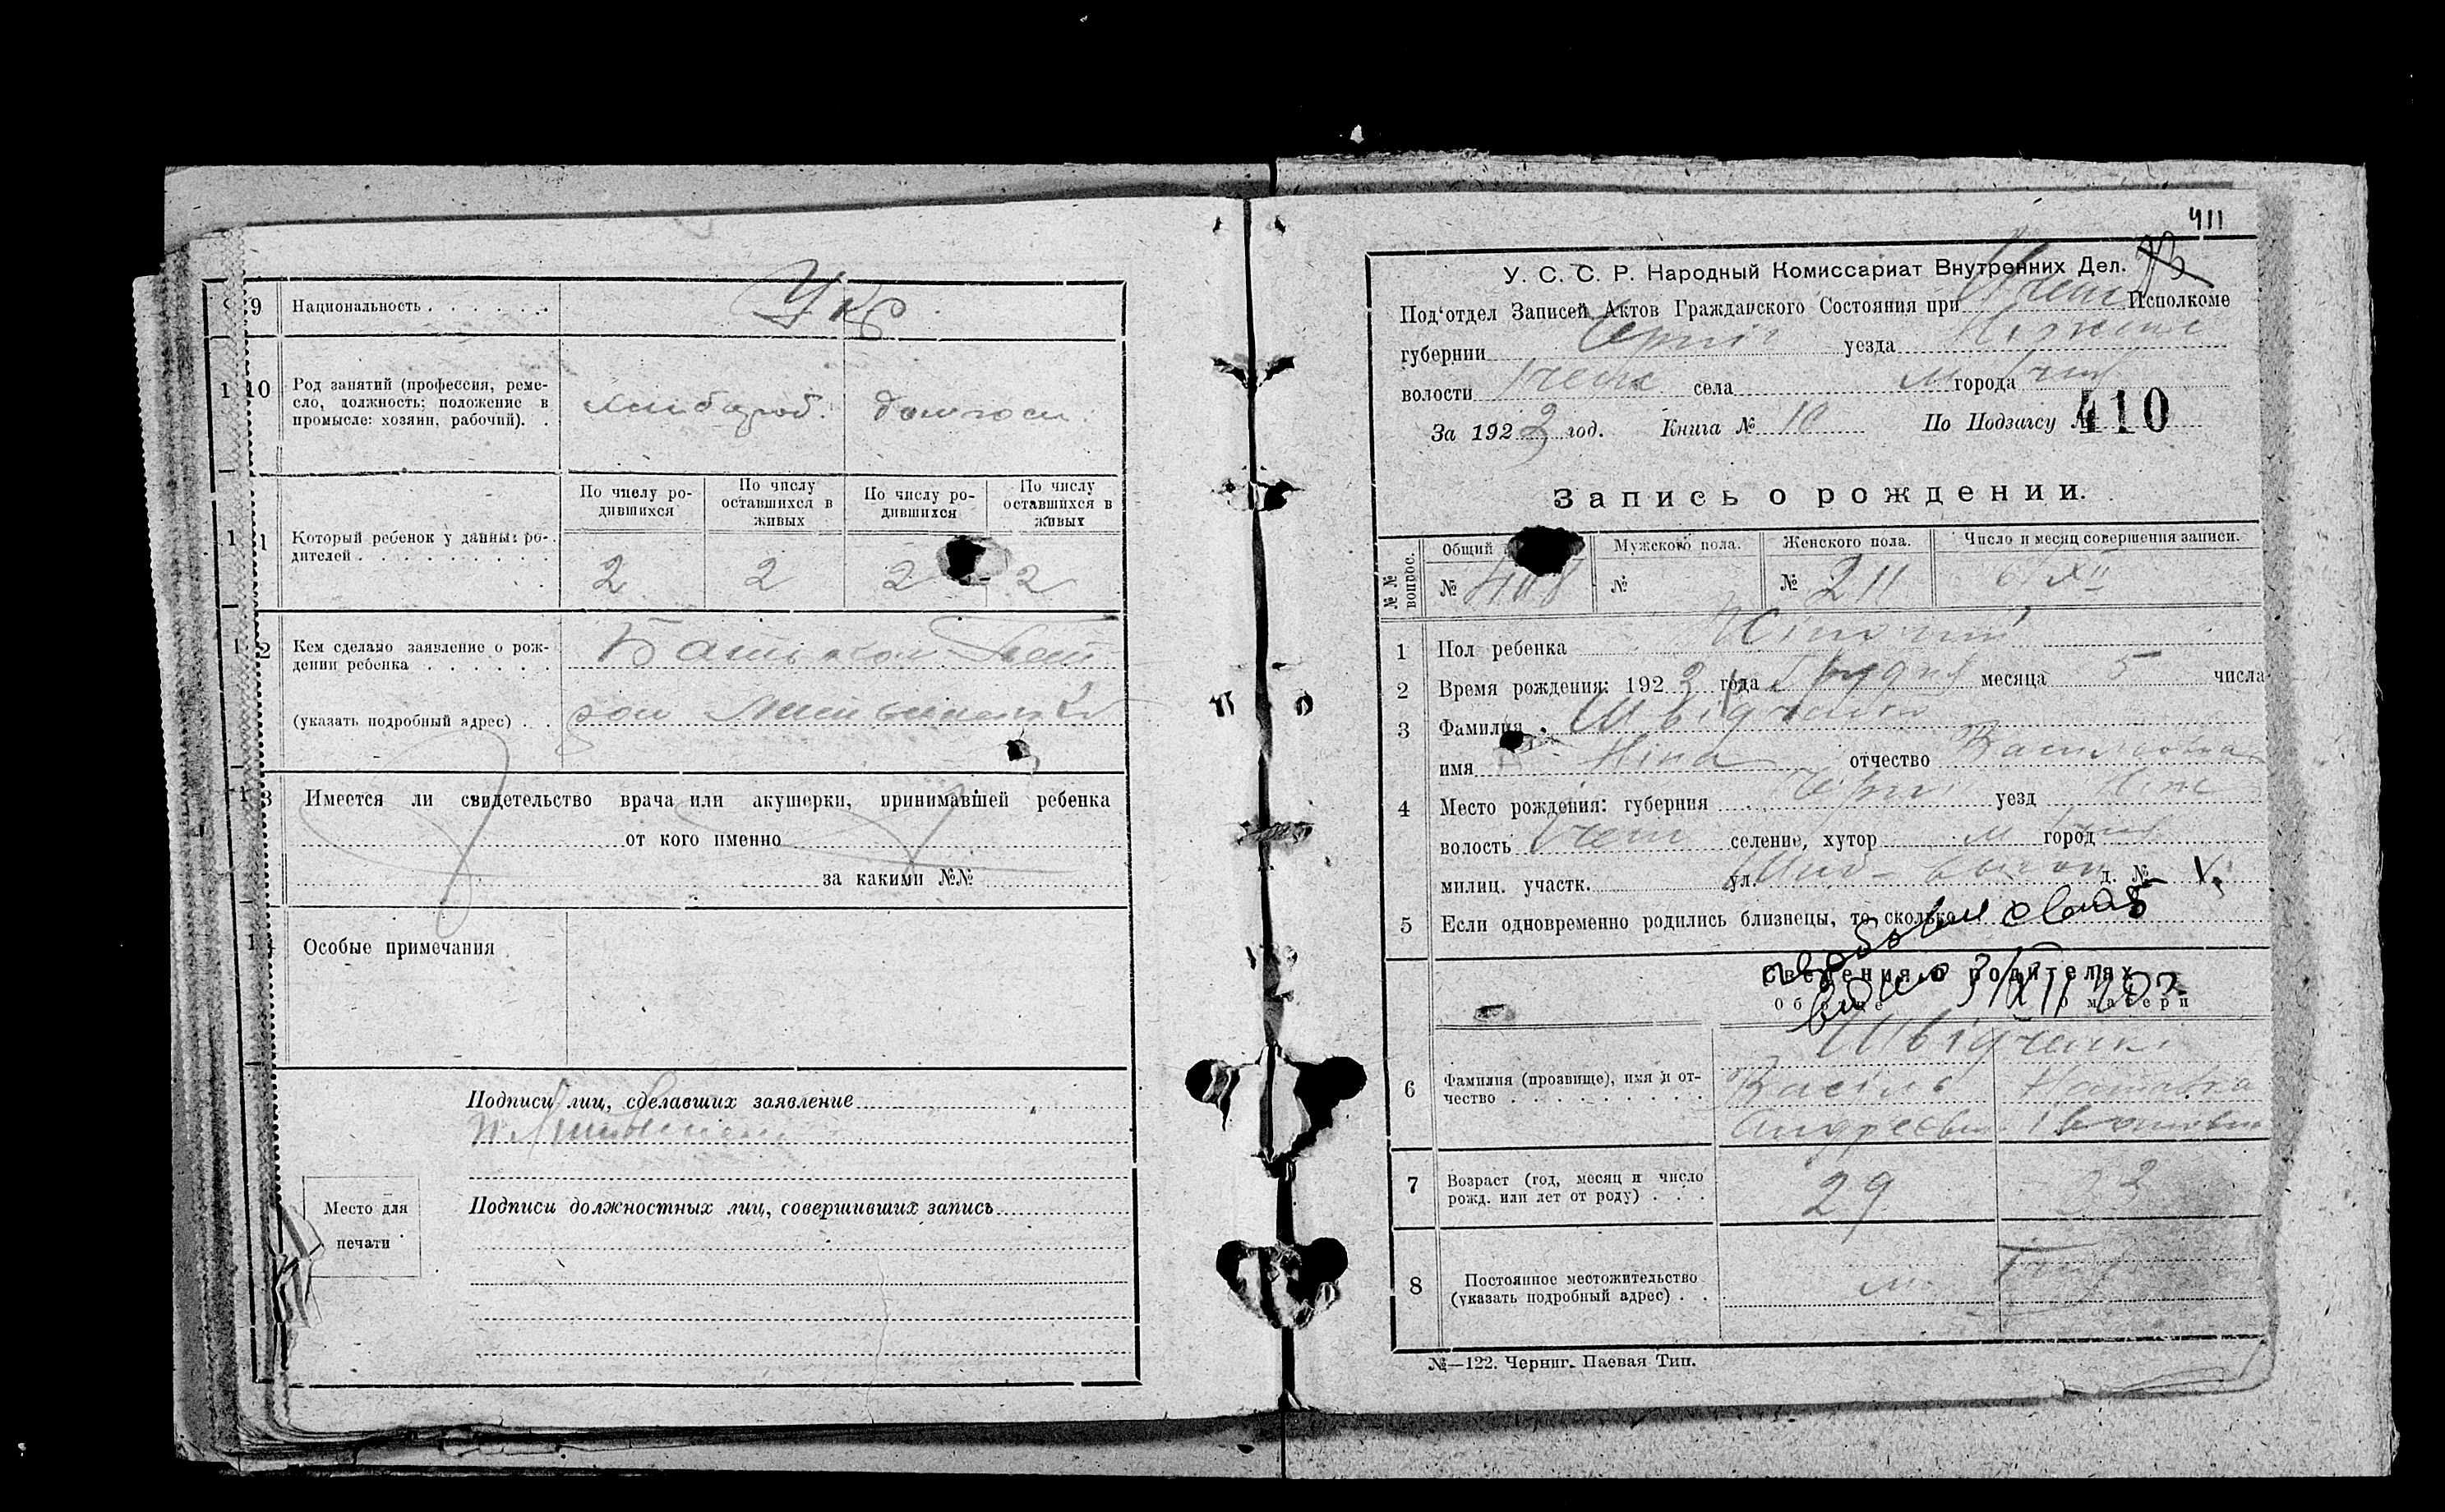 9 Национальность . . . . . . Укр.
10 Род занятий (профессия, реме-
сло, должность; положение в
промысле: хозяин, рабочий). .
хлибороб. домгосп.
По числу ро-
дившихся
По числу
оставшихся в
живых
По числу ро-
дившихся
По числу
оставшихся в
живых
11 Который ребенок у данных ро-
дителей . . . . . . . . .
2 2 2 2
12 Кем сделано заявление о рож-
дении ребенка . . . . . .
Батьком
(указать подробный адрес) . .
13 Имеется ли свидетельство врача или акушерки, принимавшей ребенка
от кого именно
за какими №№
Особые примечания
Подписи лиц, сделавших заявление
Место для
печати
Подписи должностных лиц, совершивших запись
411
У. С. С. Р. Народный Комиссариат Внутренних Дел. 93
Под‘отдел Записей Актов Гражданского Состояния при Ічен Исполкоме
губернии Черніг уезда Ніженс
волости Іченс села м города Ічня
За 1923 год. Книга № 10 По Подзагсу № 410
Запись о рождении.
№№ вопрос.
Общий
Мужского пола.
Женского пола.
Число и месяц совершения записи.
№ 408 № № 211 6 XII
1 Пол ребенка Жіночий
2 Время рождения: 1923 года Грудня месяца 5 числа
3 Фамилия Швідченко
имя Ніна отчество Василевна
4 Место рождения: губерния Черніг уезд Ніж
волость Ічен селение, хутор м город Ічня
милиц. участк. ул. д. № V.
5 Если одновременно родились близнецы, то сколько
Сведения о родителях
Об отце
О матери
6 Фамилия (прозвище), имя и от-
чество . . . . . . . . .
Швідченки
Василь
Андреевич
7 Возраст (год, месяц и число
рожд. или лет от роду) . . .
29 23
8 Постоянное местожительство
(указать подробный адрес) . .
м. Ічня
№—122. Черниг. Паевая Тип.